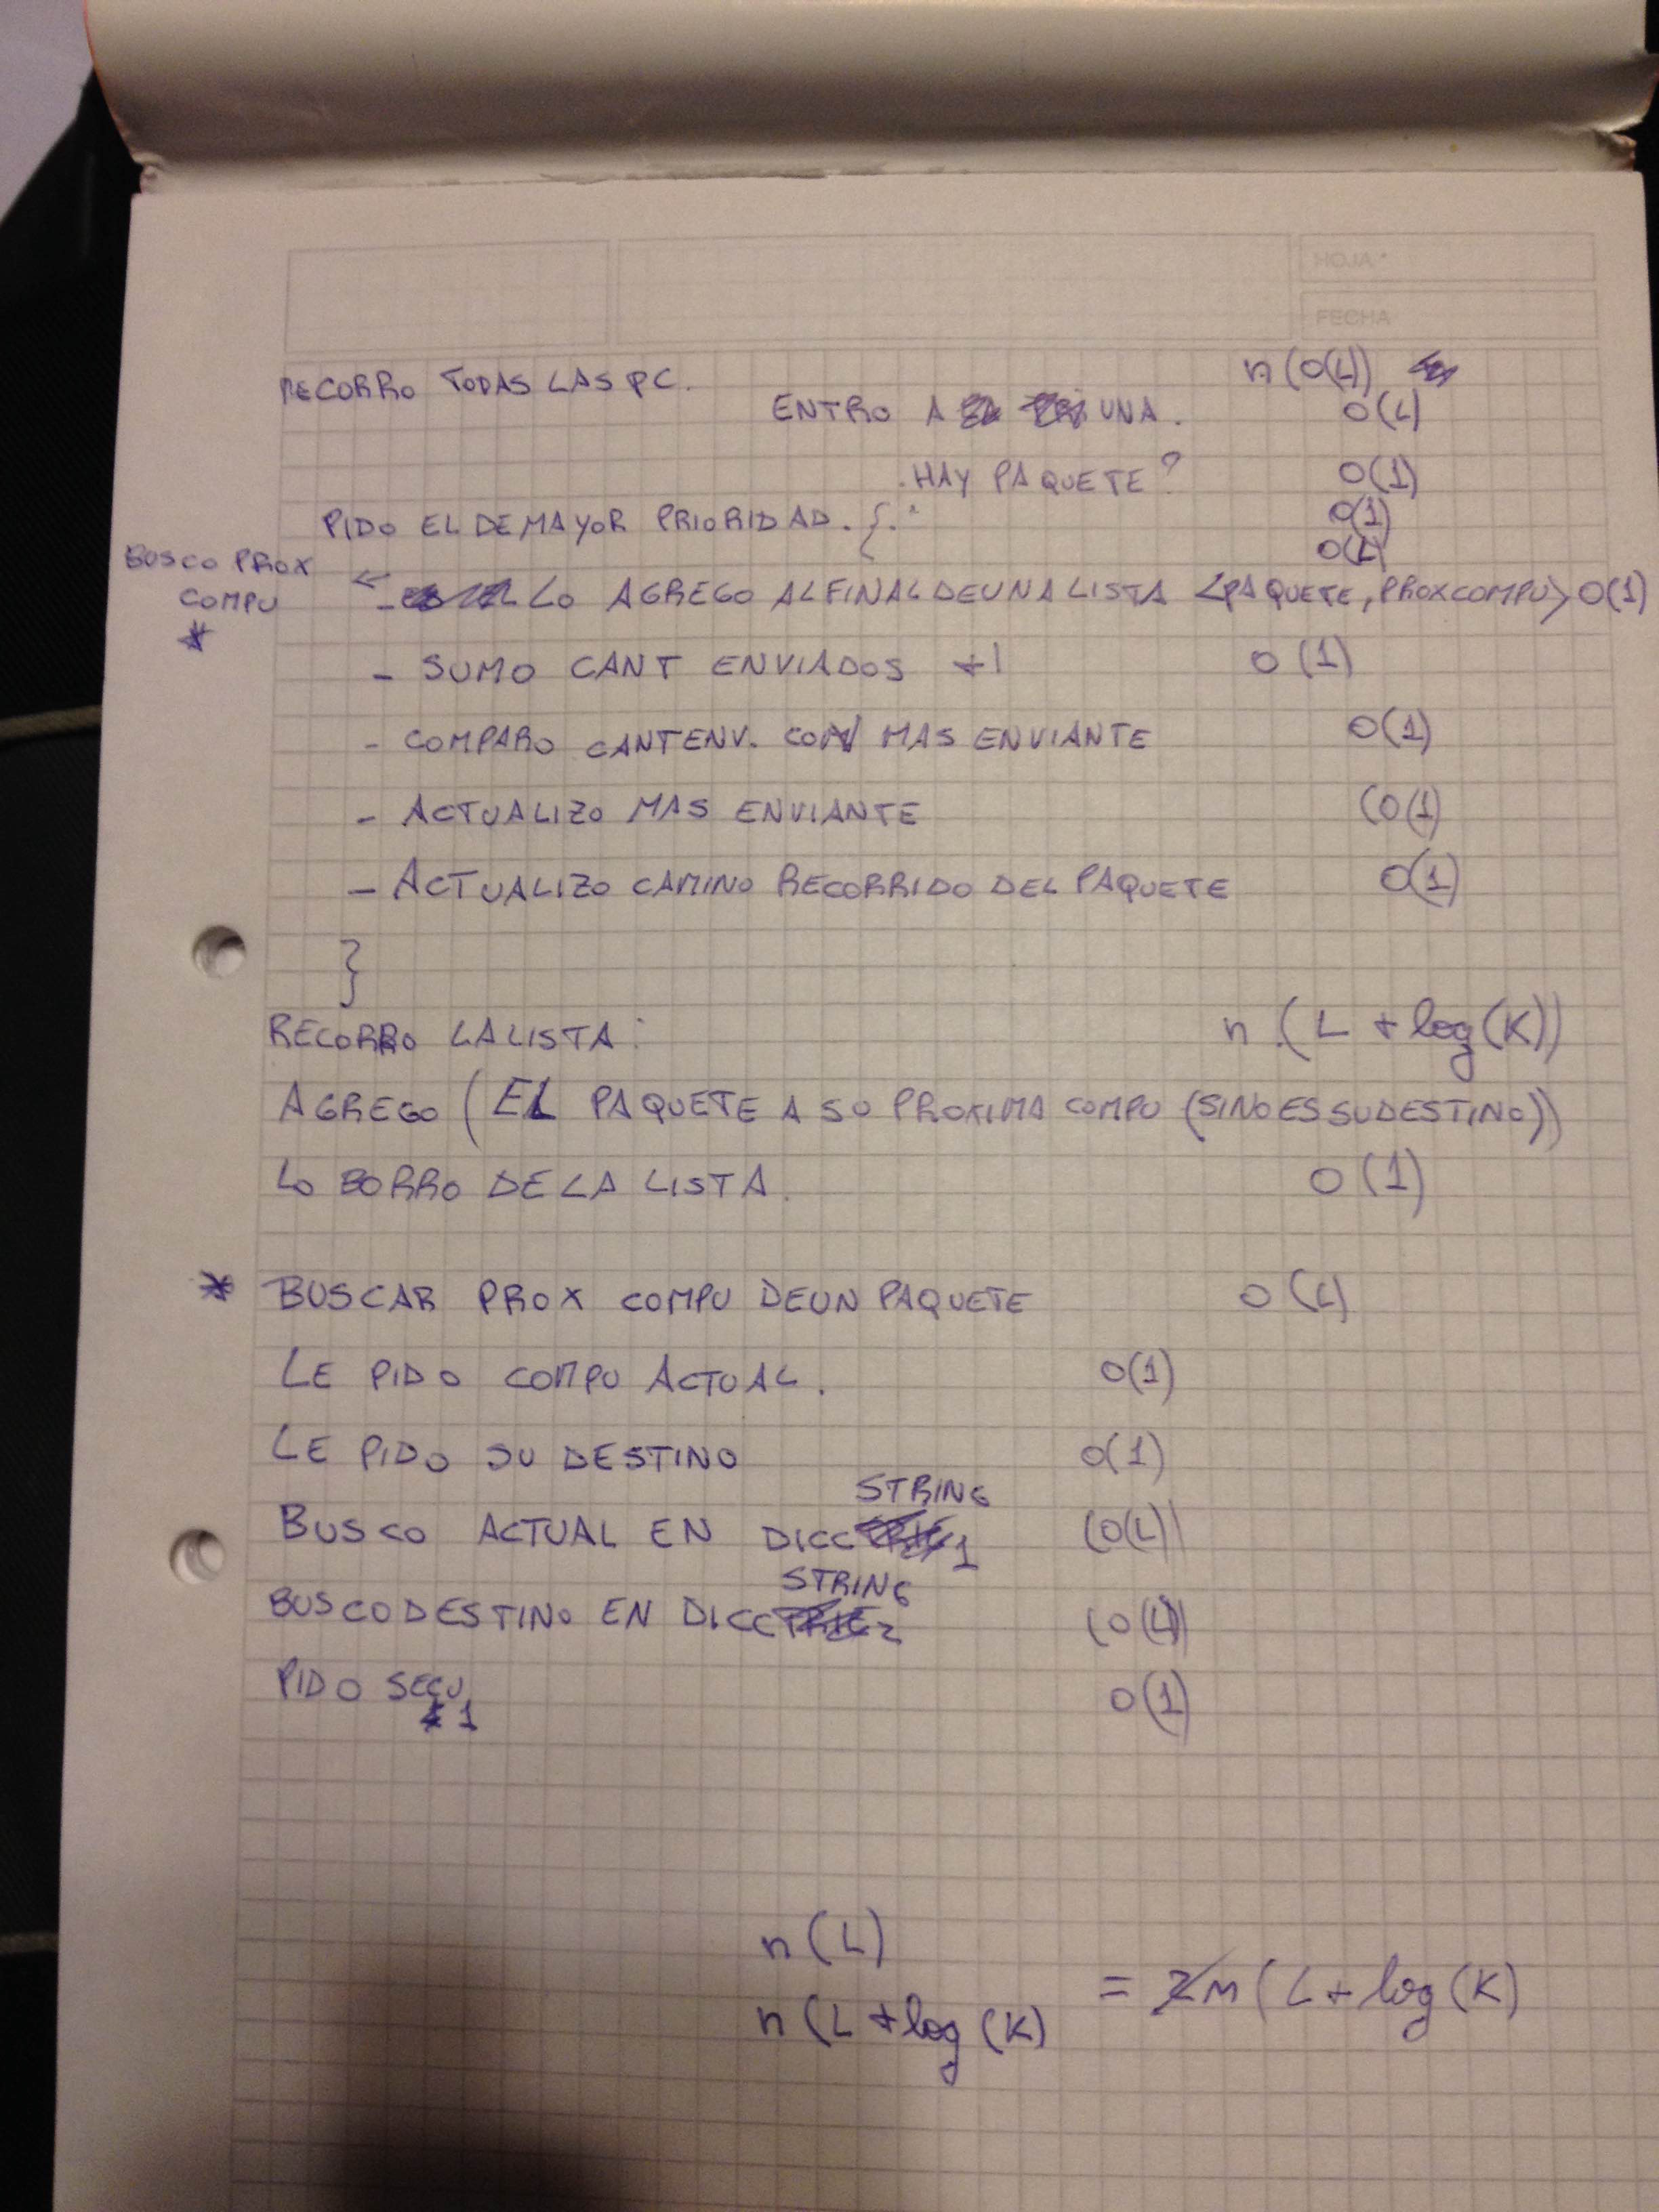 HOJA °
FECHA
RECORRO TODAS LAS PC. n (O(L))
ENTRO A UNA. O(L)
. HAY PAQUETE? O(1)
PIDO EL DE MAYOR PRIORIDAD. { O(1)
O(L)
BUSCO PROX COMPU * ← - LO AGREGO AL FINAL DE UNA LISTA <PAQUETE, PROXCOMPU> O(1)
- SUMO CANT ENVIADOS +1 O(1)
- COMPARO CANTENV. CON MAS ENVIANTE O(1)
- ACTUALIZO MAS ENVIANTE (O(1)
- ACTUALIZO CAMINO RECORRIDO DEL PAQUETE O(1)
}
RECORRO LA LISTA: n.(L + log(K))
AGREGO (EL PAQUETE A SU PROXIMA COMPU (SI NO ES SU DESTINO))
LO BORRO DE LA LISTA. O(1)
* BUSCAR PROX COMPU DE UN PAQUETE O(L)
LE PIDO COMPU ACTUAL. O(1)
LE PIDO SU DESTINO O(1)
BUSCO ACTUAL EN DICC STRING 1 (O(L))
BUSCO DESTINO EN DICC STRING 2 (O(L))
PIDO SECU 1 O(1)
n(L)
n(L + log(K) = 2n(L + log(K)